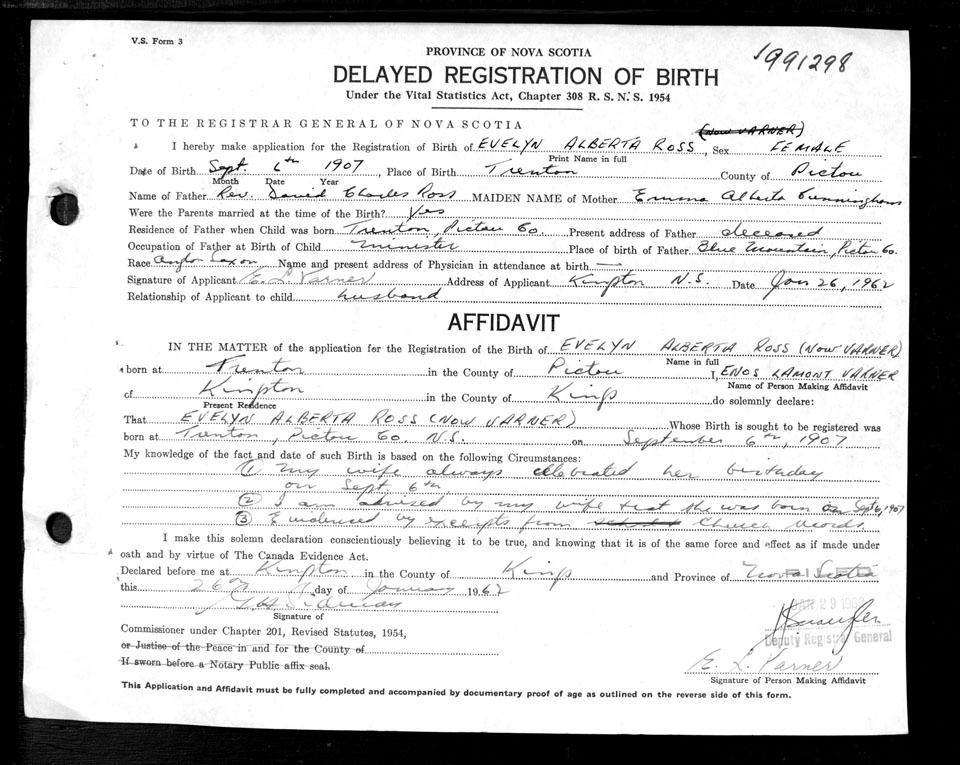 V.S. Form 3
1991298
PROVINCE OF NOVA SCOTIA
DELAYED REGISTRATION OF BIRTH
Under the Vital Statistics Act, Chapter 308 R. S. N. S. 1954
TO THE REGISTRAR GENERAL OF NOVA SCOTIA
(NOW VARNER)
I hereby make application for the Registration of Birth of EVELYN ALBERTA ROSS, Sex FEMALE
Print Name in full
Date of Birth Sept. 6th 1907, Place of Birth Trenton County of Pictou
Month Date Year
Name of Father Rev. David Charles Ross MAIDEN NAME of Mother Emma Alberta Cunningham
Were the Parents married at the time of the Birth? Yes
Residence of Father when Child was born Trenton, Pictou Co. Present address of Father deceased
Occupation of Father at Birth of Child minister Place of birth of Father Blue Mountain, Pictou Co.
Race Anglo Saxon Name and present address of Physician in attendance at birth —
Signature of Applicant E. L. Varner Address of Applicant Kingston N.S. Date Jan 26, 1962
Relationship of Applicant to child husband
AFFIDAVIT
IN THE MATTER of the application for the Registration of the Birth of EVELYN ALBERTA ROSS (NOW VARNER)
Name in full
born at Trenton in the County of Pictou I, ENOS LAMONT VARNER
Name of Person Making Affidavit
of Kingston in the County of Kings do solemnly declare:
Present Residence
That EVELYN ALBERTA ROSS (NOW VARNER) Whose Birth is sought to be registered was
born at Trenton, Pictou Co. N.S. on September 6th, 1907
My knowledge of the fact and date of such Birth is based on the following Circumstances:
① My wife always celebrated her birthday
on Sept 6th.
② I am advised by my wife that she was born on Sept 6, 1907
③ Evidenced by excerpts from Church records
I make this solemn declaration conscientiously believing it to be true, and knowing that it is of the same force and effect as if made under
oath and by virtue of The Canada Evidence Act.
Declared before me at Kingston in the County of Kings and Province of Nova Scotia
this 26th day of January 1962
JAN 29 1962
Signature of
Commissioner under Chapter 201, Revised Statutes, 1954,
Deputy Registrar General
or Justice of the Peace in and for the County of
If sworn before a Notary Public affix seal.
E. L. Varner
Signature of Person Making Affidavit
This Application and Affidavit must be fully completed and accompanied by documentary proof of age as outlined on the reverse side of this form.